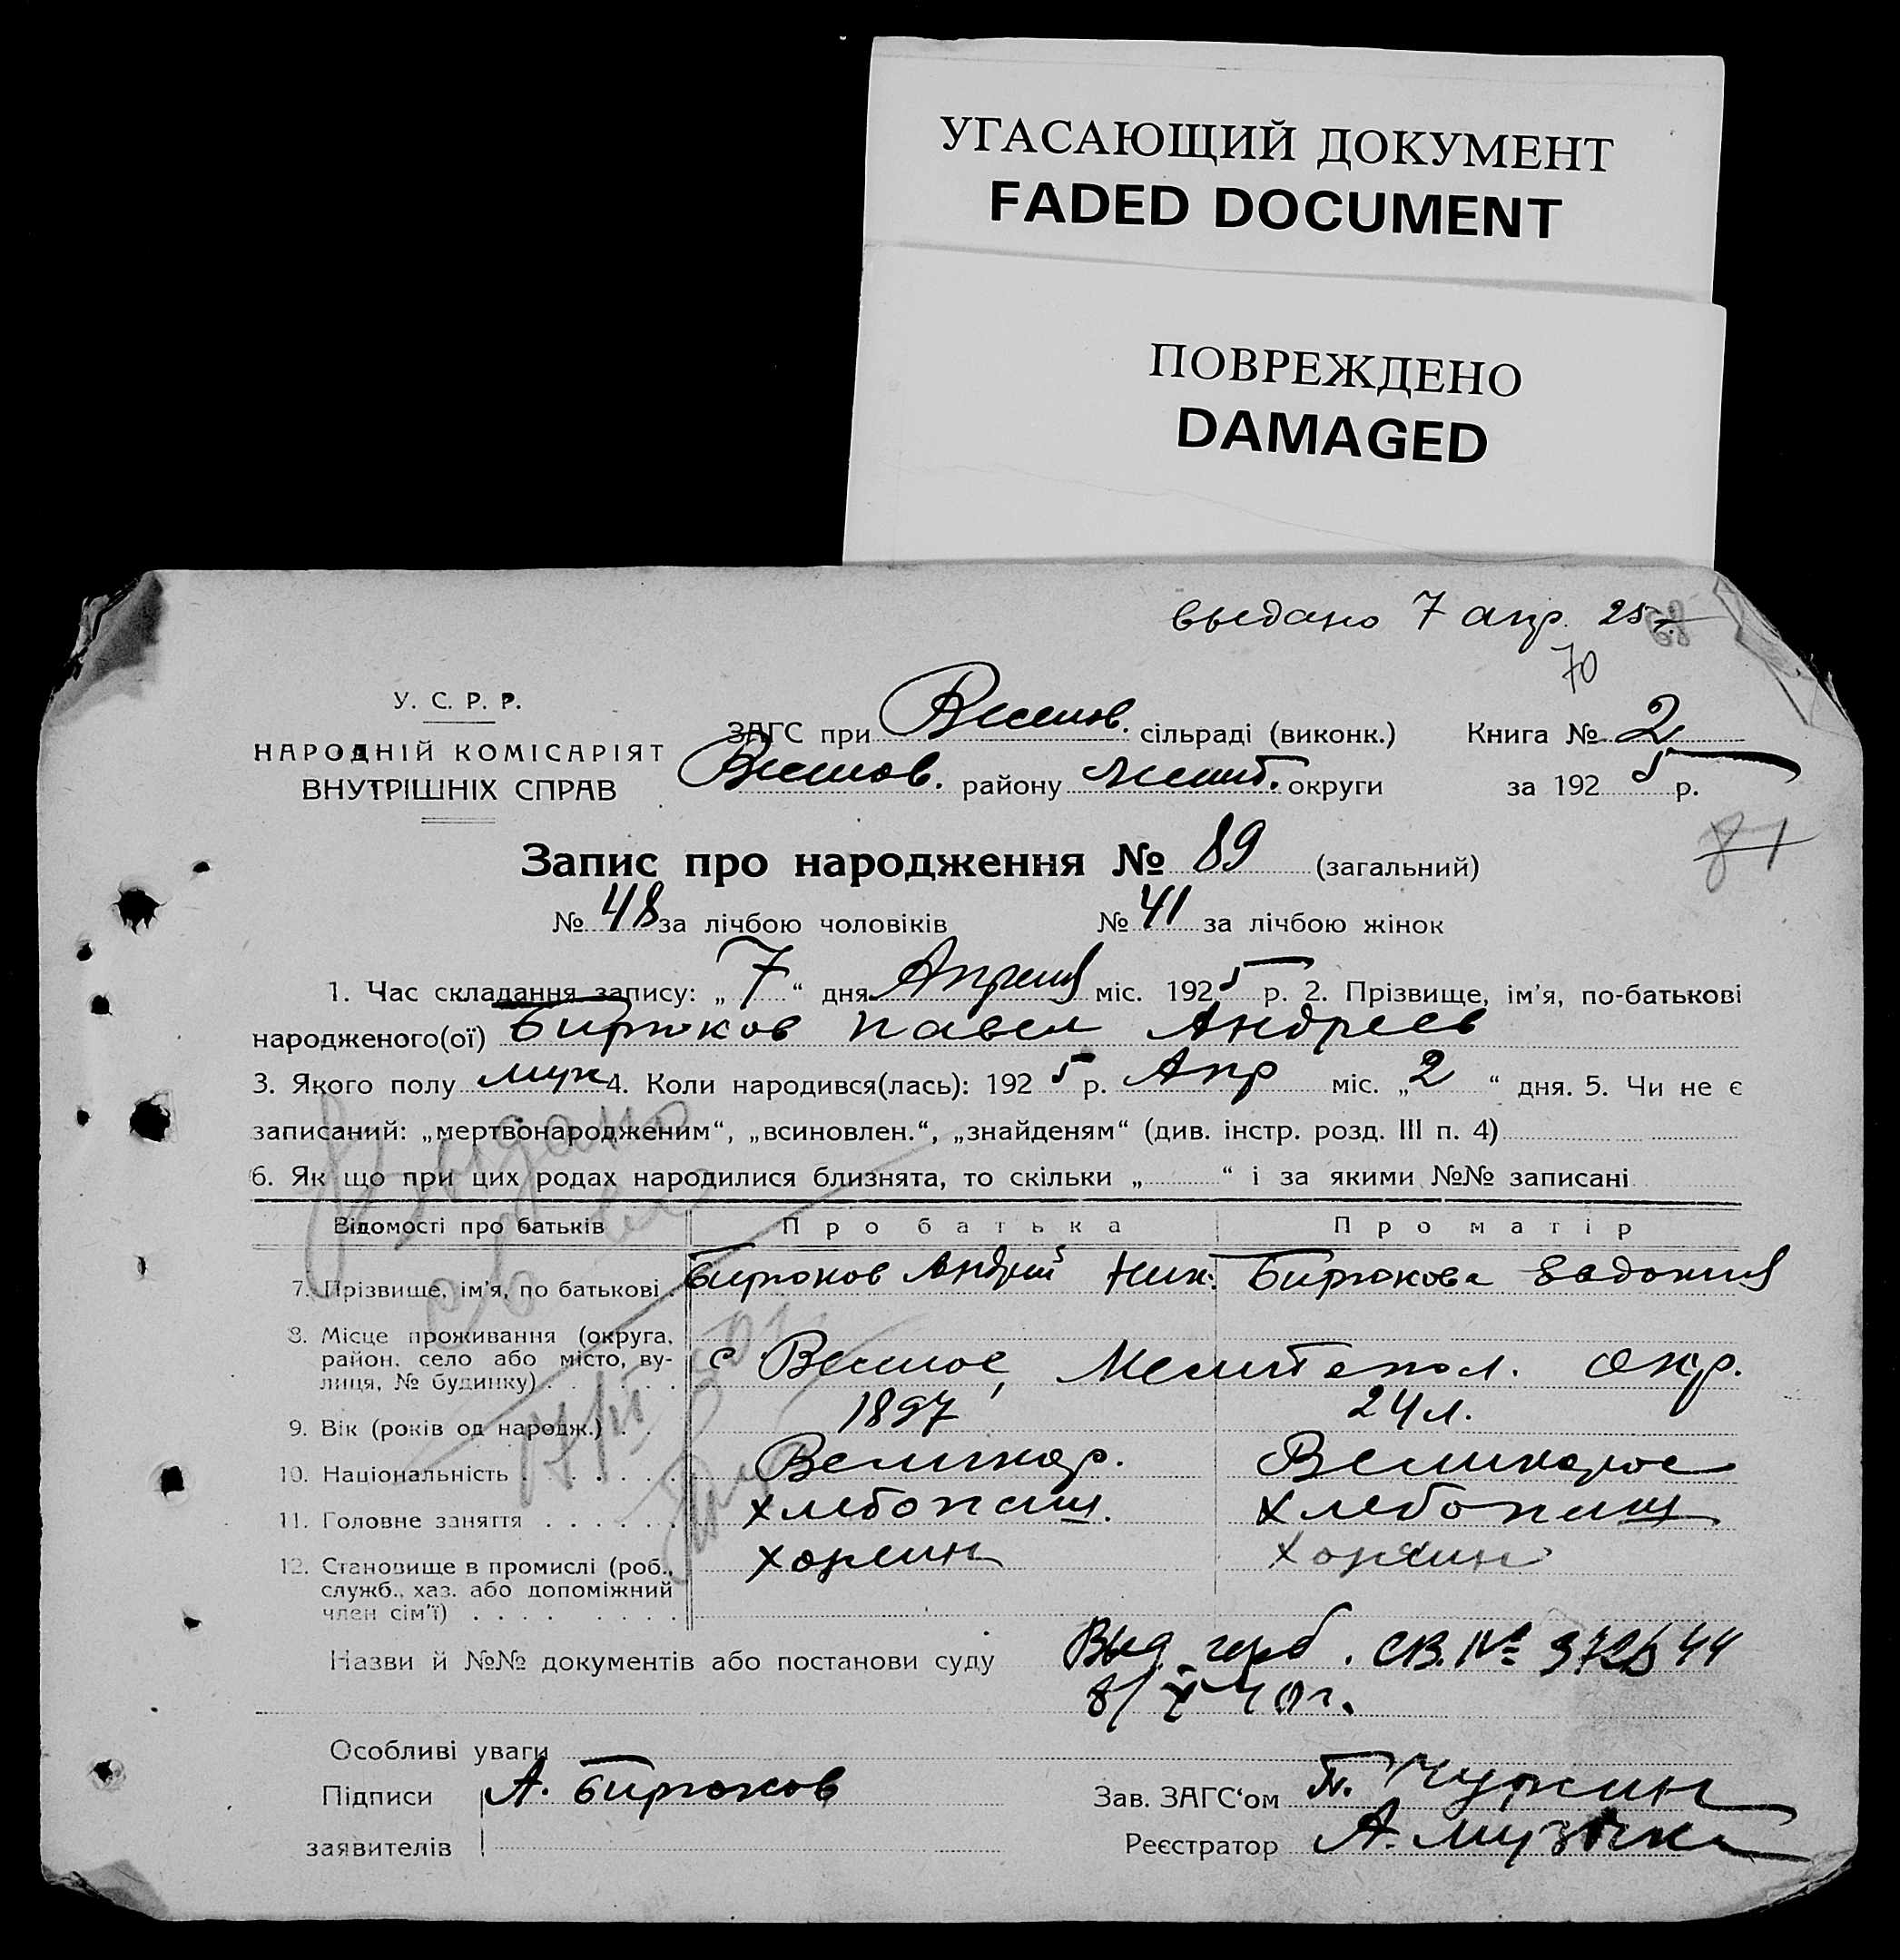 УГАСАЮЩИЙ ДОКУМЕНТ
FADED DOCUMENT
ПОВРЕЖДЕНО
DAMAGED
выдано 7 апр. 25 г.
70
У. С. Р. Р.
НАРОДНІЙ КОМІСАРІЯТ
ВНУТРІШНІХ СПРАВ
ЗАГС при Веселов. сільраді (виконк.) Книга № 2
Веселов. району Мелит. округи за 1925 р.
87
Запис про народження № 89 (загальний)
№ 48 за лічбою чоловіків № 41 за лічбою жінок
1. Час складання запису: „7“ дня Апреля міс. 1925 р. 2. Прізвище, ім'я, по-батькові
народженого(ої) Бирюков Павел Андреев
3. Якого полу муж 4. Коли народився(лась): 1925 р. Апр міс. „2“ дня. 5. Чи не є
записаний: „мертвонародженим“, „всиновлен.“, „знайденям“ (див. інстр. розд. III п. 4)
6. Як що при цих родах народилися близнята, то скільки „ “ і за якими №№ записані
Выдано
Відомості про батьків Про батька Про матір
7. Прізвище, ім'я, по батькові . Бирюков Андрей Ник. Бирюкова Евдокия
8. Місце проживання (округа,
район, село або місто, ву-
лиця, № будинку) . . . . с Веселое, Мелитопол. окр.
9. Вік (років од народж.) . . 1897 24 л.
10. Національність . . . . . . Великор. Великорос
11. Головне заняття . . . . . . хлебопаш. хлебопаш
12. Становище в промислі (роб., хозяин хозяин
служб., хаз. або допоміжний
член сім'ї) . . . . . . . .
Назви й №№ документів або постанови суду Выд. герб. св. №
8/X 40 г.
Особливі уваги
Підписи А. Бирюков Зав. ЗАГС'ом П. Чужин
заявителів Реєстратор А. Музыка